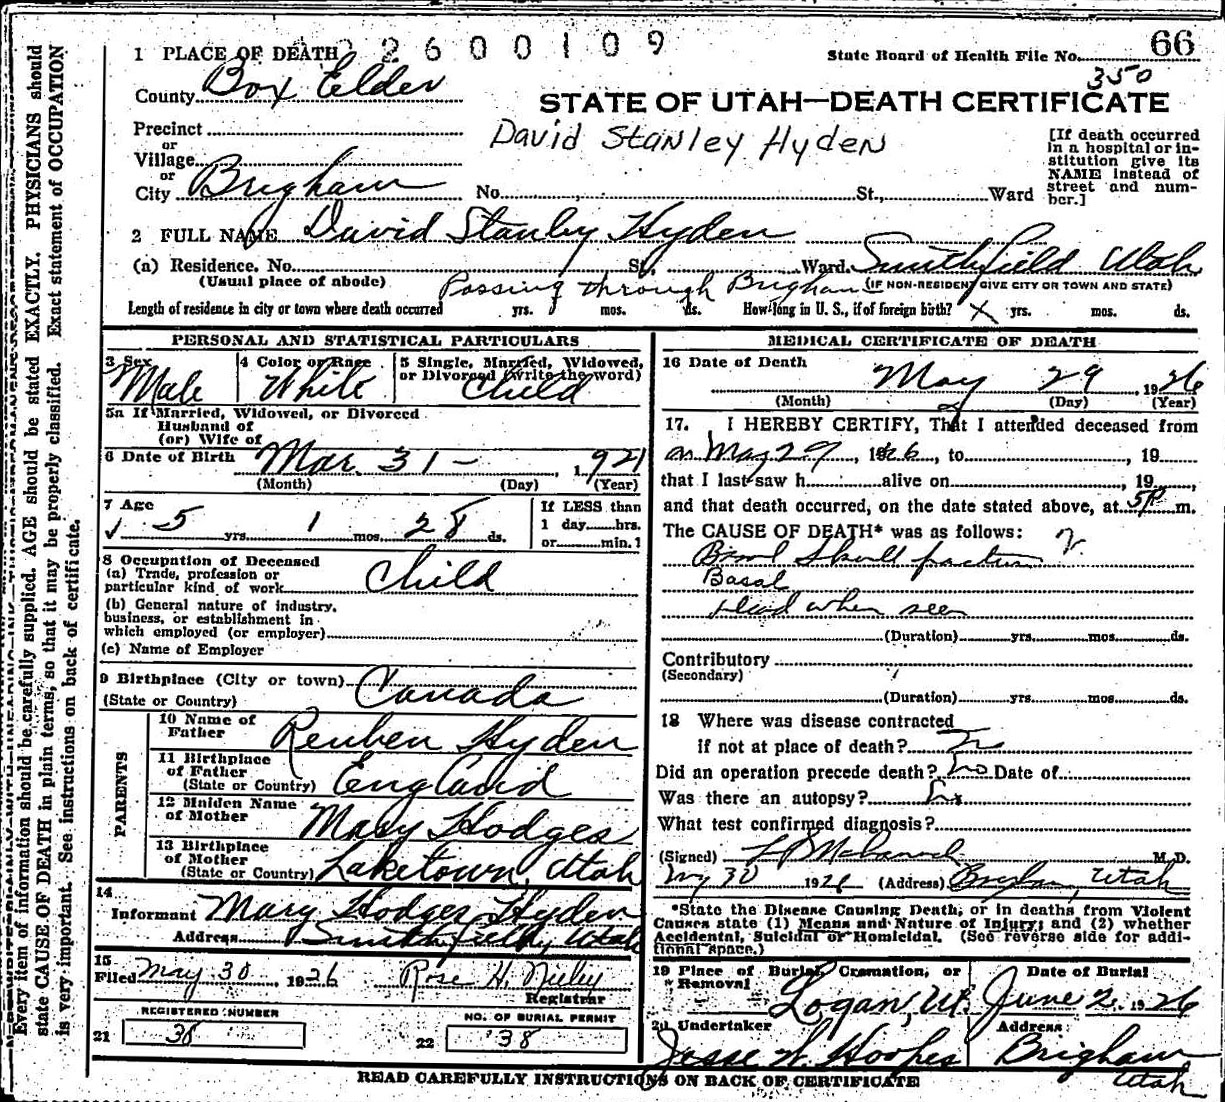 1 PLACE OF DEATH 2600109 State Board of Health File No. 66
350
County Box Elder
STATE OF UTAH—DEATH CERTIFICATE
Precinct
or
Village
or
City Brigham No. St., Ward
David Stanley Hyden
[If death occurred in a hospital or institution give its NAME instead of street and number.]
2 FULL NAME David Stanley Hyden
(a) Residence. No. St. Ward. Smithfield Utah
(Usual place of abode) Passing through Brigham (IF NON-RESIDENT GIVE CITY OR TOWN AND STATE)
Length of residence in city or town where death occurred yrs. mos. ds. How long in U. S., if of foreign birth? X yrs. mos. ds.
PERSONAL AND STATISTICAL PARTICULARS
3 Sex Male
4 Color or Race White
5 Single, Married, Widowed, or Divorced (write the word) Child
5a If Married, Widowed, or Divorced
Husband of
(or) Wife of
6 Date of Birth Mar. 31 - , 1921
(Month) (Day) (Year)
7 Age
5 yrs. 1 mos. 28 ds.
If LESS than
1 day hrs.
or min.?
8 Occupation of Deceased
(a) Trade, profession or
particular kind of work Child
(b) General nature of industry,
business, or establishment in
which employed (or employer)
(c) Name of Employer
9 Birthplace (City or town) Canada
(State or Country)
PARENTS
10 Name of
Father Reuben Hyden
11 Birthplace
of Father England
(State or Country)
12 Maiden Name
of Mother Mary Hodges
13 Birthplace
of Mother
(State or Country) Laketown, Utah
14
Informant Mary Hodges Hyden
Address Smithfield, Utah
15
Filed May 30 1926 Rose H. Neeley
Registrar
REGISTERED NUMBER
21 38
NO. OF BURIAL PERMIT
22 38
MEDICAL CERTIFICATE OF DEATH
16 Date of Death
May 29, 1926
(Month) (Day) (Year)
17. I HEREBY CERTIFY, That I attended deceased from
on May 29, 1926, to , 19
that I last saw h alive on , 19 ,
and that death occurred, on the date stated above, at 5P m.
The CAUSE OF DEATH* was as follows:
Skull fracture
Basal
dead when seen
(Duration) yrs. mos. ds.
Contributory
(Secondary)
(Duration) yrs. mos. ds.
18 Where was disease contracted
if not at place of death?
Did an operation precede death? no Date of
Was there an autopsy?
What test confirmed diagnosis?
(Signed) M. D.
May 30 1926 (Address) Brigham, Utah
*State the Disease Causing Death, or in deaths from Violent
Causes state (1) Means and Nature of Injury; and (2) whether
Accidental, Suicidal or Homicidal. (See reverse side for additional space.)
19 Place of Burial, Cremation, or
Removal Logan, Ut.
Date of Burial
June 2, 1926
20 Undertaker
Jesse W. Hoopes
Address
Brigham
Utah
READ CAREFULLY INSTRUCTIONS ON BACK OF CERTIFICATE
Every item of information should be carefully supplied. AGE should be stated EXACTLY. PHYSICIANS should
state CAUSE OF DEATH in plain terms, so that it may be properly classified. Exact statement of OCCUPATION
is very important. See instructions on back of certificate.